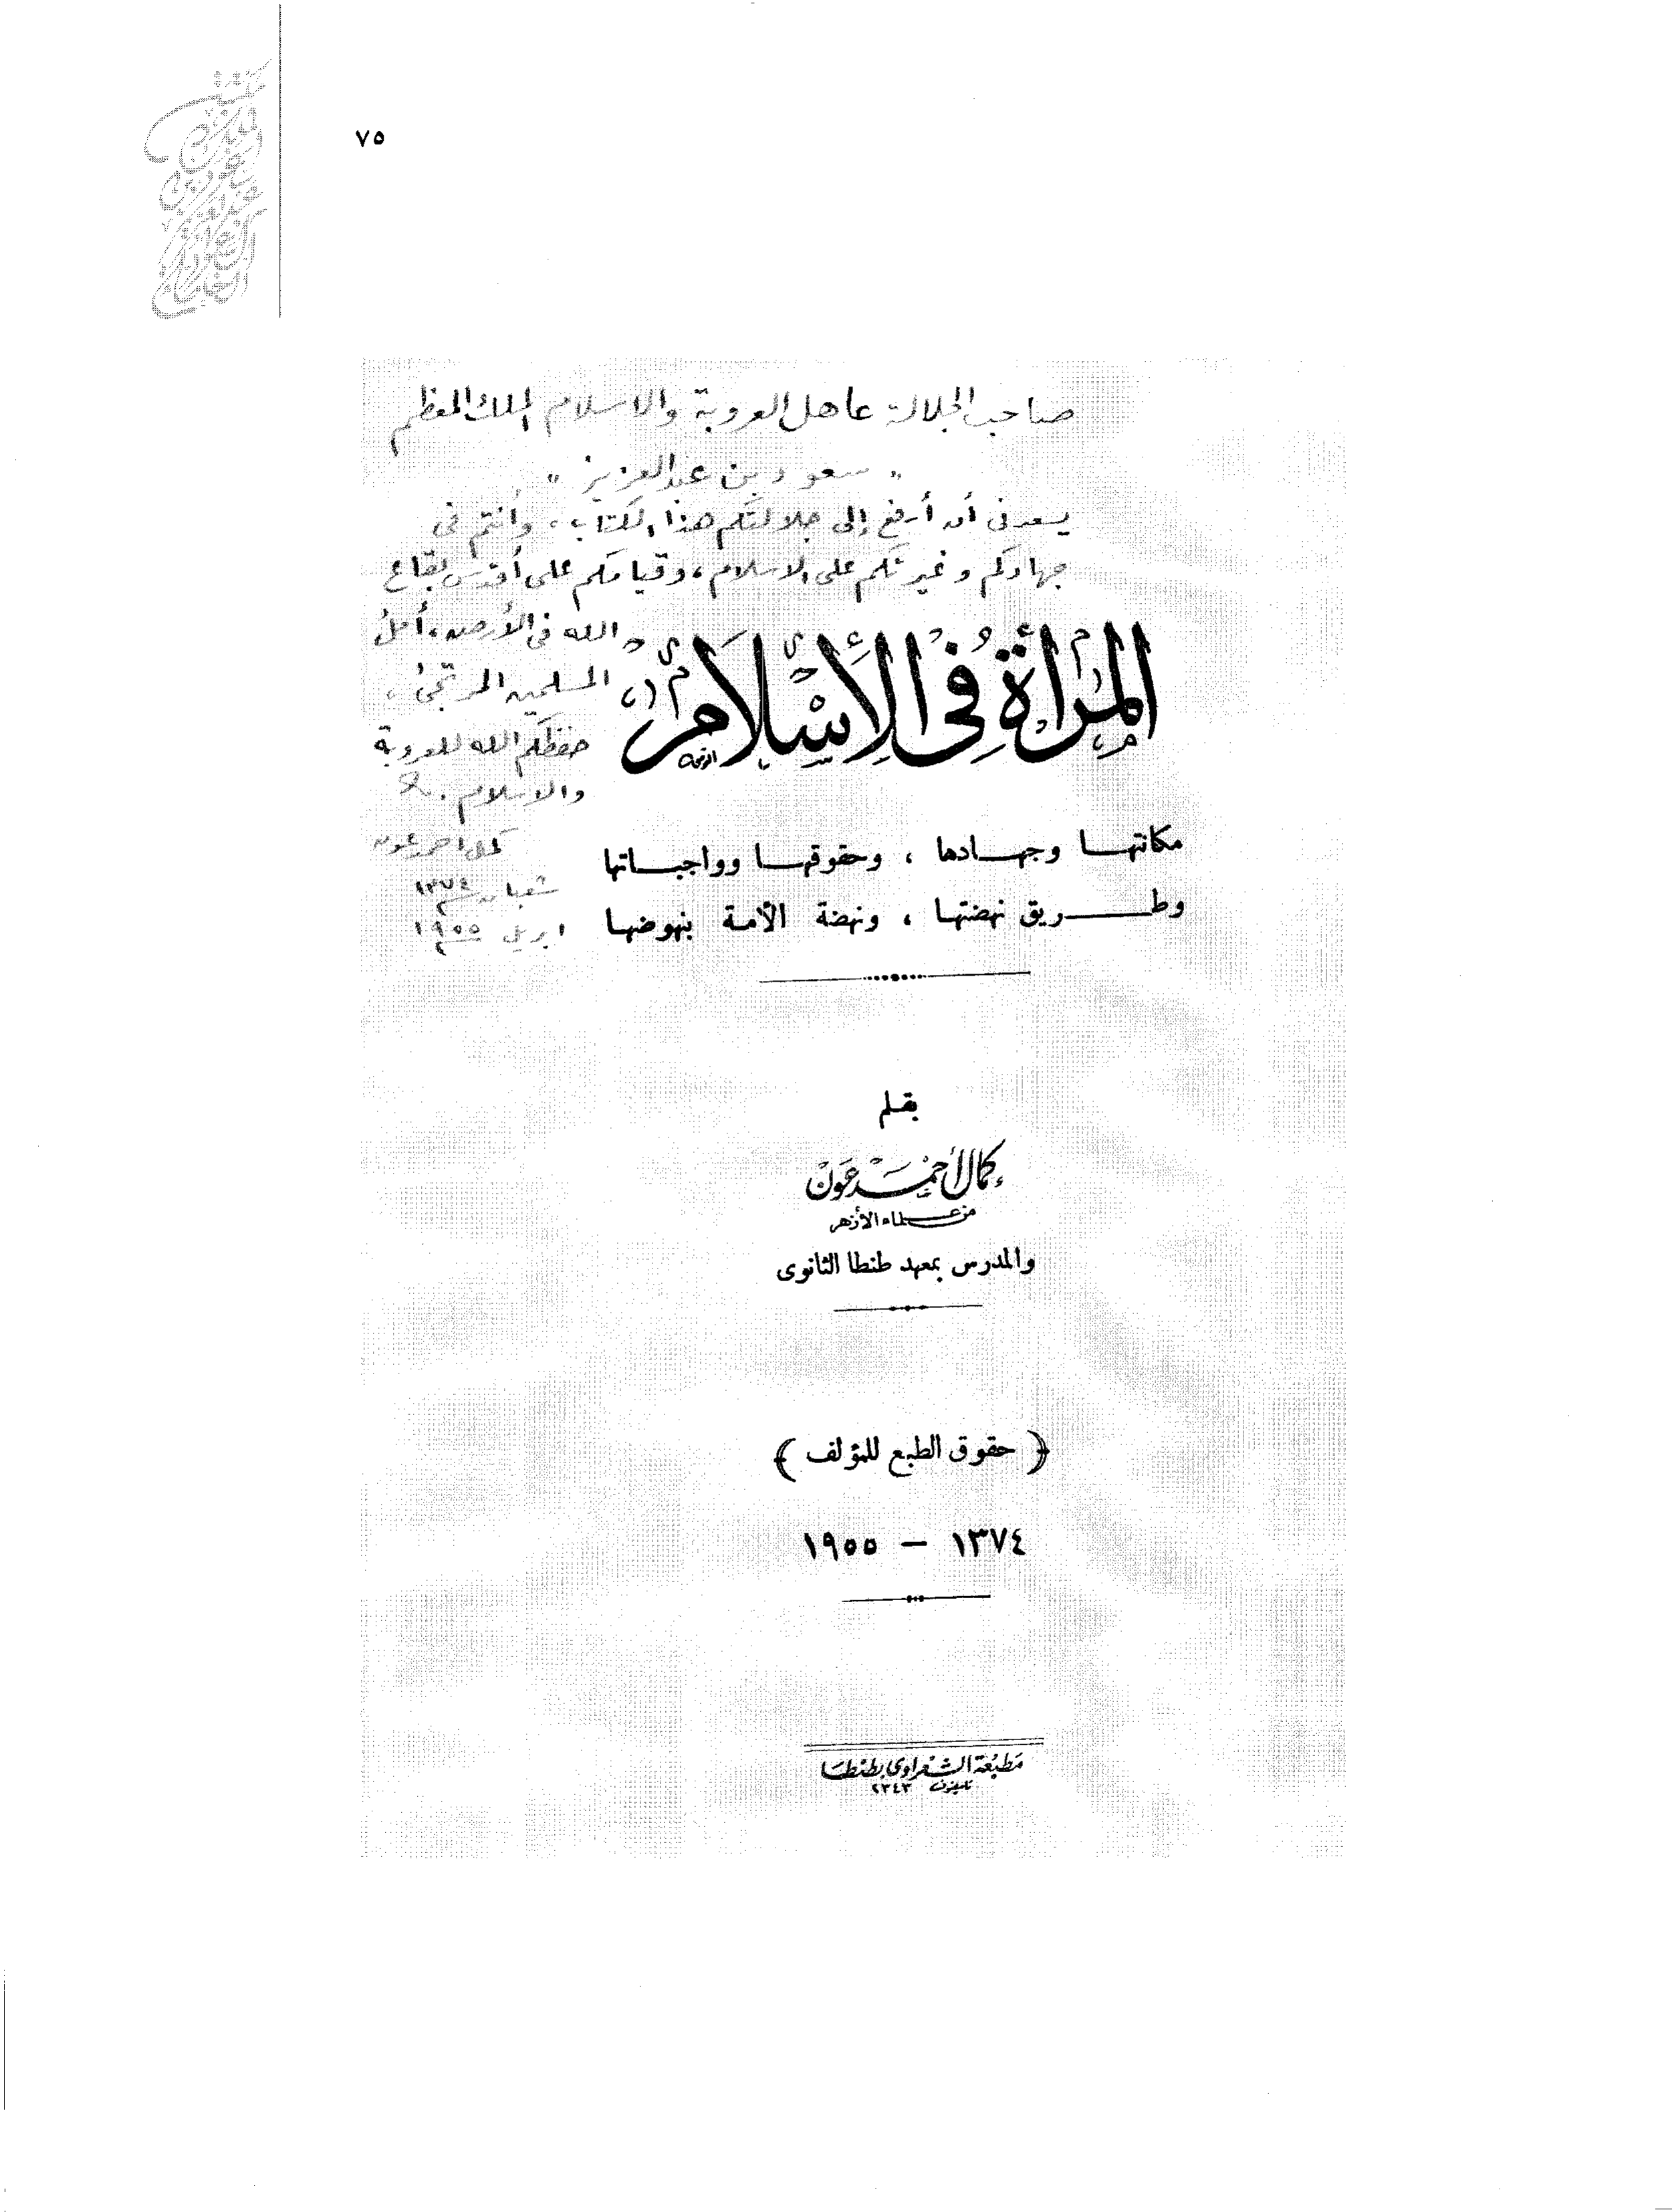 ٧٥
صاحب الجلالة عاهل العروبة والاسلام الملك المعظم
" سعود بن عبد العزيز "
يسعدنى أن أرفع إلى جلالتكم هذا الكتاب ، وأنتم فى
جهادكم وغيرتكم على الاسلام ، وقيامكم على أقدس بقاع
الله فى الأرض ، أمل
المسلمين المرتجى ،
حفظكم الله للعروبة
والاسلام .
كمال احمد عون
شعبان سنة ١٣٧٤
ابريل سنة ١٩٥٥
المرأة فى الإسلام
مكانتهـا وجهـادها ، وحقوقهـا وواجبـاتها
وطـريق نهضتهـا ، ونهضة الأمـة بنهوضهـا
بقـلم
كمال أحمد عون
من علماء الأزهر
والمدرس بمعهد طنطا الثانوى
( حقوق الطبع للمؤلف )
١٣٧٤ – ١٩٥٥
مطبعة الشعراوى بطنطا
تليفون ٢٣٤٣